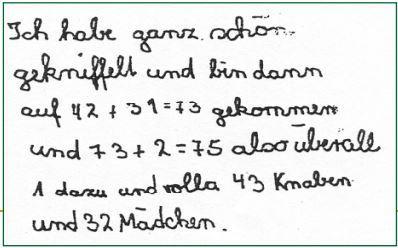 Ich habe ganz schön
gekniffelt und bin dann
auf 42 + 31 = 73 gekommen
und 73 + 2 = 75 also überall
1 dazu und volla 43 Knaben
und 32 Mädchen.